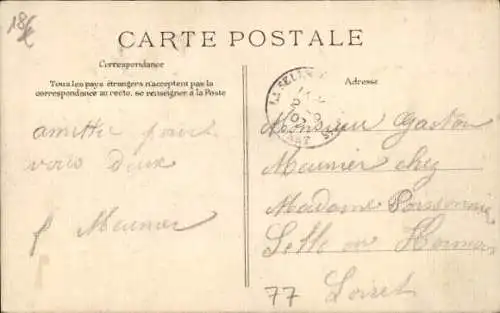 18
CARTE POSTALE
Correspondance
Tous les pays étrangers n'acceptent pas la
correspondance au recto, se renseigner à la Poste
amitié pour
vous deux
Meunier
Adresse
LA SELLE
Monsieur Gaston
Meunier chez
Madame Poissonnier
Selle sur
Loiret
77